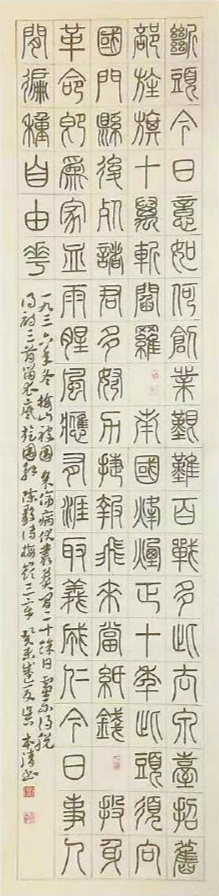 斷頭今日意如何創業艱難百戰多此去泉臺招舊
部旌旗十萬斬閻羅南國烽煙正十年此頭須向
國門縣後死諸君多努力捷報飛來當紙錢投身
革命即爲家血雨腥風應有涯取義成仁今日事人
間徧種自由花
一九三六年冬梅山被圍余傷病伏叢莽間二十餘日慮不得脫
得詩三首留衣底旋圍解陳毅詩梅嶺三章癸未